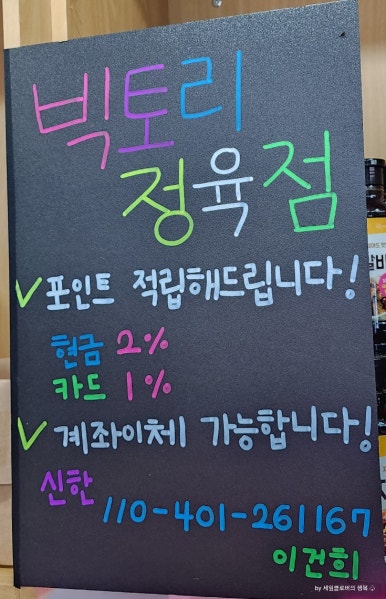 빅토리
정육점
✓ 포인트 적립해드립니다!
현금 2%
카드 1%
✓ 계좌이체 가능합니다!
신한
110-401-261167
이건희
by 세잎클로버의 행복